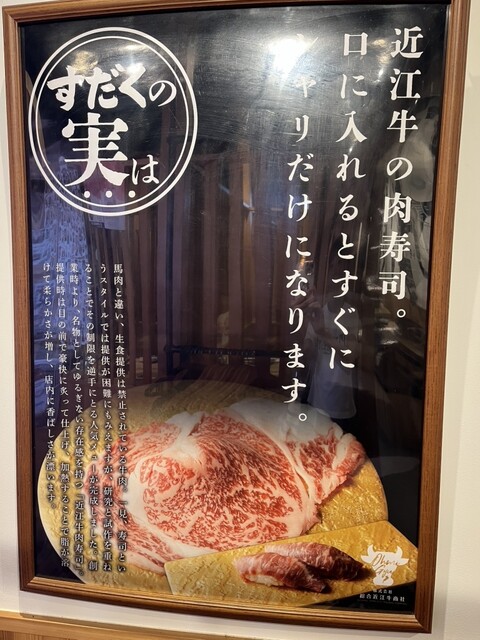 近江牛の肉寿司。
口に入れるとすぐに
シャリだけになります。
すだくの
実は
馬肉と違い、生食提供は禁止されている牛肉。一見、寿司とい
うスタイルでは提供が困難にもみえますが、研究と試作を重ね
ることでその制限を逆手にとる人気メニューが完成しました。創
業時より、名物としてゆるぎない存在感を持つ「近江牛肉寿司」
提供時は目の前で豪快に炙って仕上げ、加熱することで脂が溶
けて柔らかさが増し、店内に香ばしさが漂います。
株式会社
総合近江牛商社